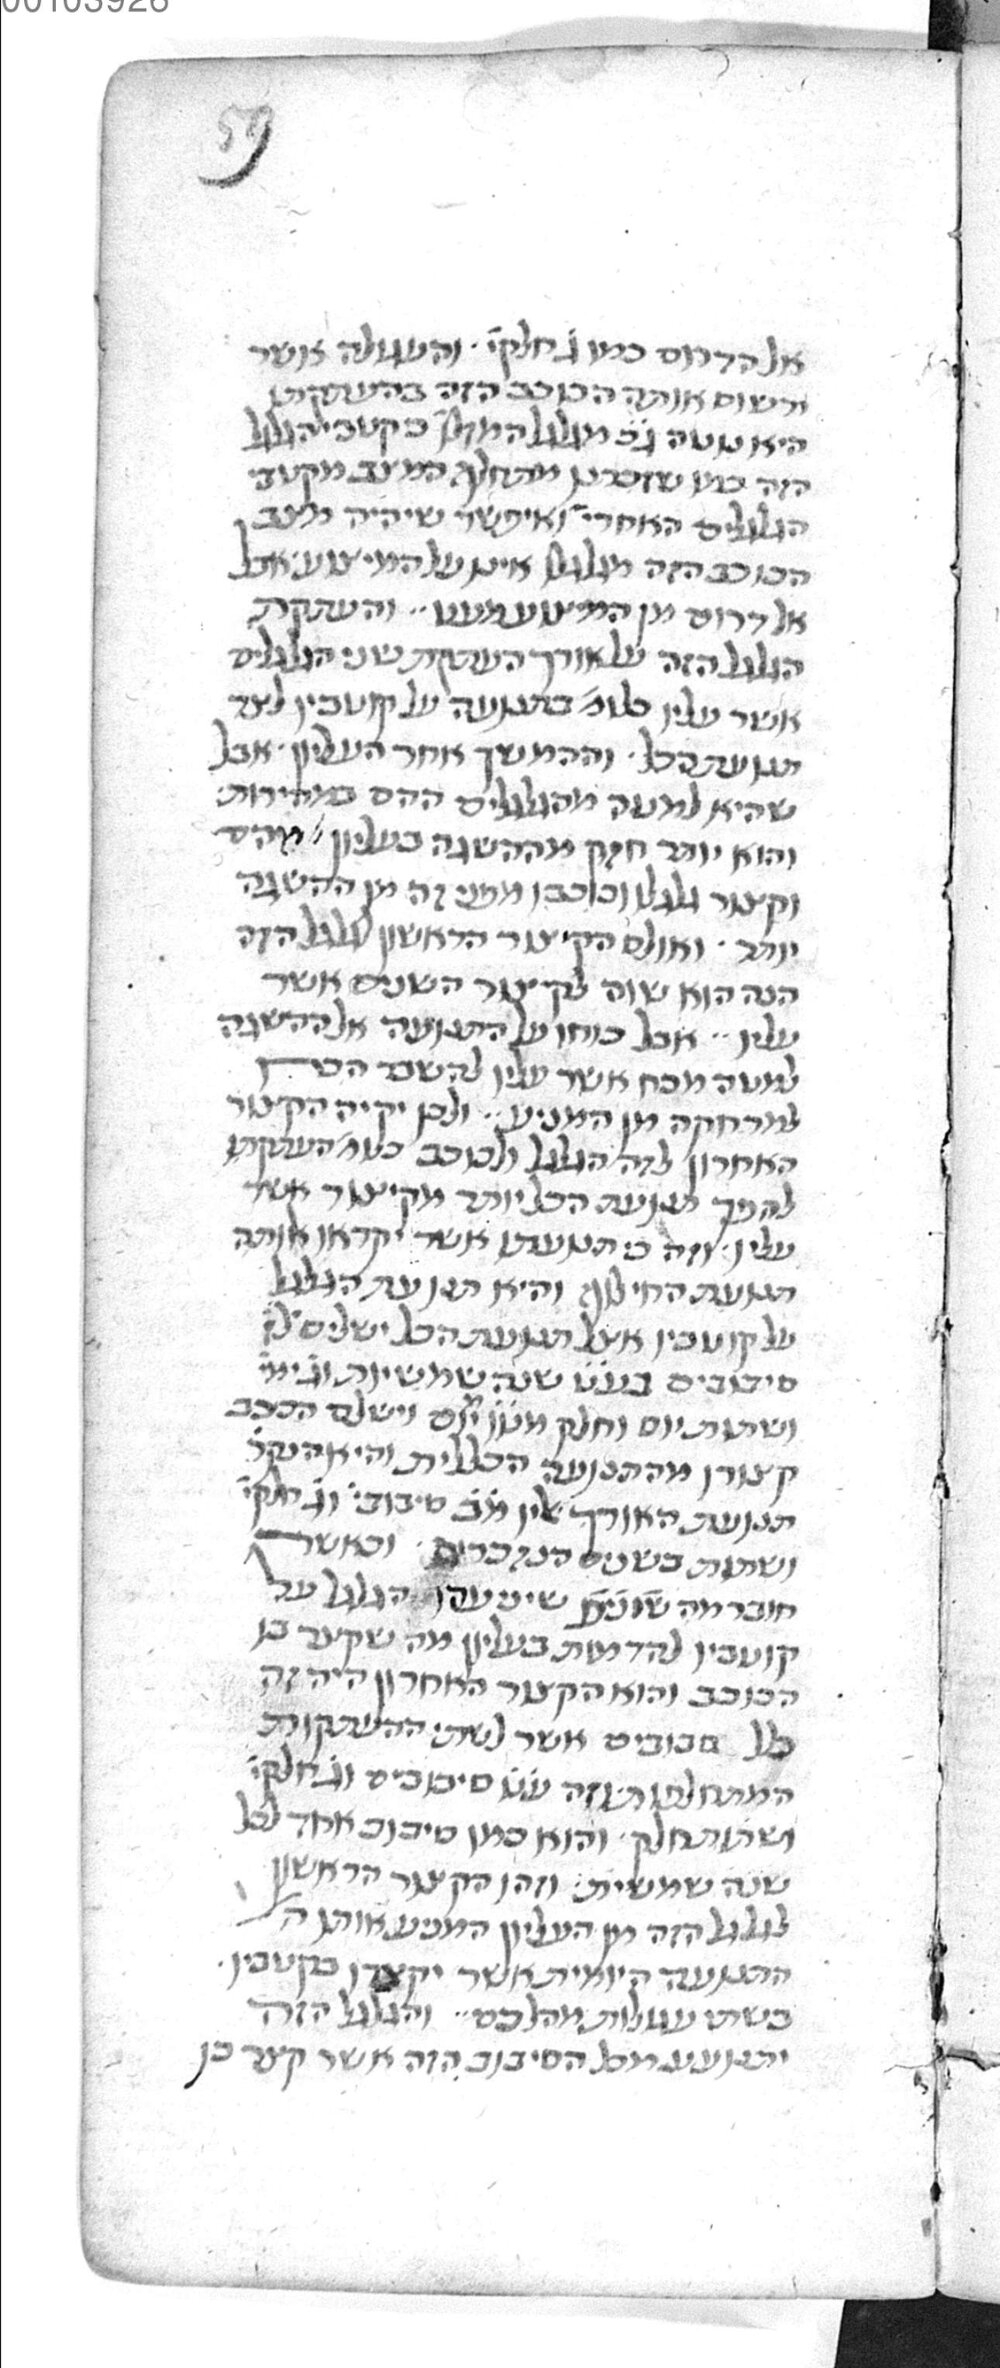 00103926
אל הדרום כמו ג' חלקי' . והעגולה אשר
ירשום אותה הכוכב הזה בהעתקתו
היא נוטה ג"כ מגלגל המזל' כקטבי הגלגל
הזה כמו שזכרנו מתחלף המצב מקטבי
הגלגלים האחרי' ואיפשר שיהיה מצב
הכוכב הזה מגלגלו אינו על המיצוע אבל
אל דרום מן המיצוע מעט .. והעתקת
הגלגל הזה על אורך העתקת שני הגלגלים
אשר עליו כלומ' בתנועה על קוטביו לצד
תנועת הכל . וההמשך אחר העליון . אבל
שהיא למטה מהגלגלים ההם במהירות
והוא יותר חזק מההשגה בעליון מהם
וקצור גלגלו וכוכבו מפני זה מן ההשגה
יותר . ואולם הקיצור הראשון לגלגל הזה
הנה הוא שוה לקיצור השנים אשר
עליו .. אבל כוחו על התנועה אל ההשגה
למטה מכח אשר עליו להשבר הכח
למרחקה מן המניע .. ולכן יהיה הקיצור
האחרון לזה הגלגל ולכוכב כעת העתקתו
להפך תנועת הכל יותר מקיצור אשר
עליו . וזה כי תנועתו אשר יקראו אותה
תנועת החילוף והיא תנועת הגלגל
על קוטביו אצל תנועת הכל ישלים ל"ז
סיבובים בע"ט שנה שמשיות וג' ימי'
ושתות יום וחלק מט"ו יום וישלם הככב
קצורו מהתנועה הכללית והיא הנקר'
תנועת האורך אליו מ"ב סיבובי' וג' חלקי'
ושתות בשנים הנזכרים . וכאשר
חובר מה שיתנועע הגלגל על
קוטביו להדמות בעליון מה שקצר בו
הכוכב והוא הקצור האחרון היה זה
כלל סבובים אשר לשתי ההעתקות
המתחלפות וזה ע"ט סיבובים וג' חלקי'
ושתות חלק . והוא כמו סיבוב אחד לכל
שנה שמשית . וזהו הקצור הראשון
לגלגל הזה מן העליון המניע אותו
התנועה היומית אשר יקצרו בקטביו .
בשתי עגולות מהלכם .. והגלגל הזה
יתנועע מכל הסיבוב הזה אשר קצר בו